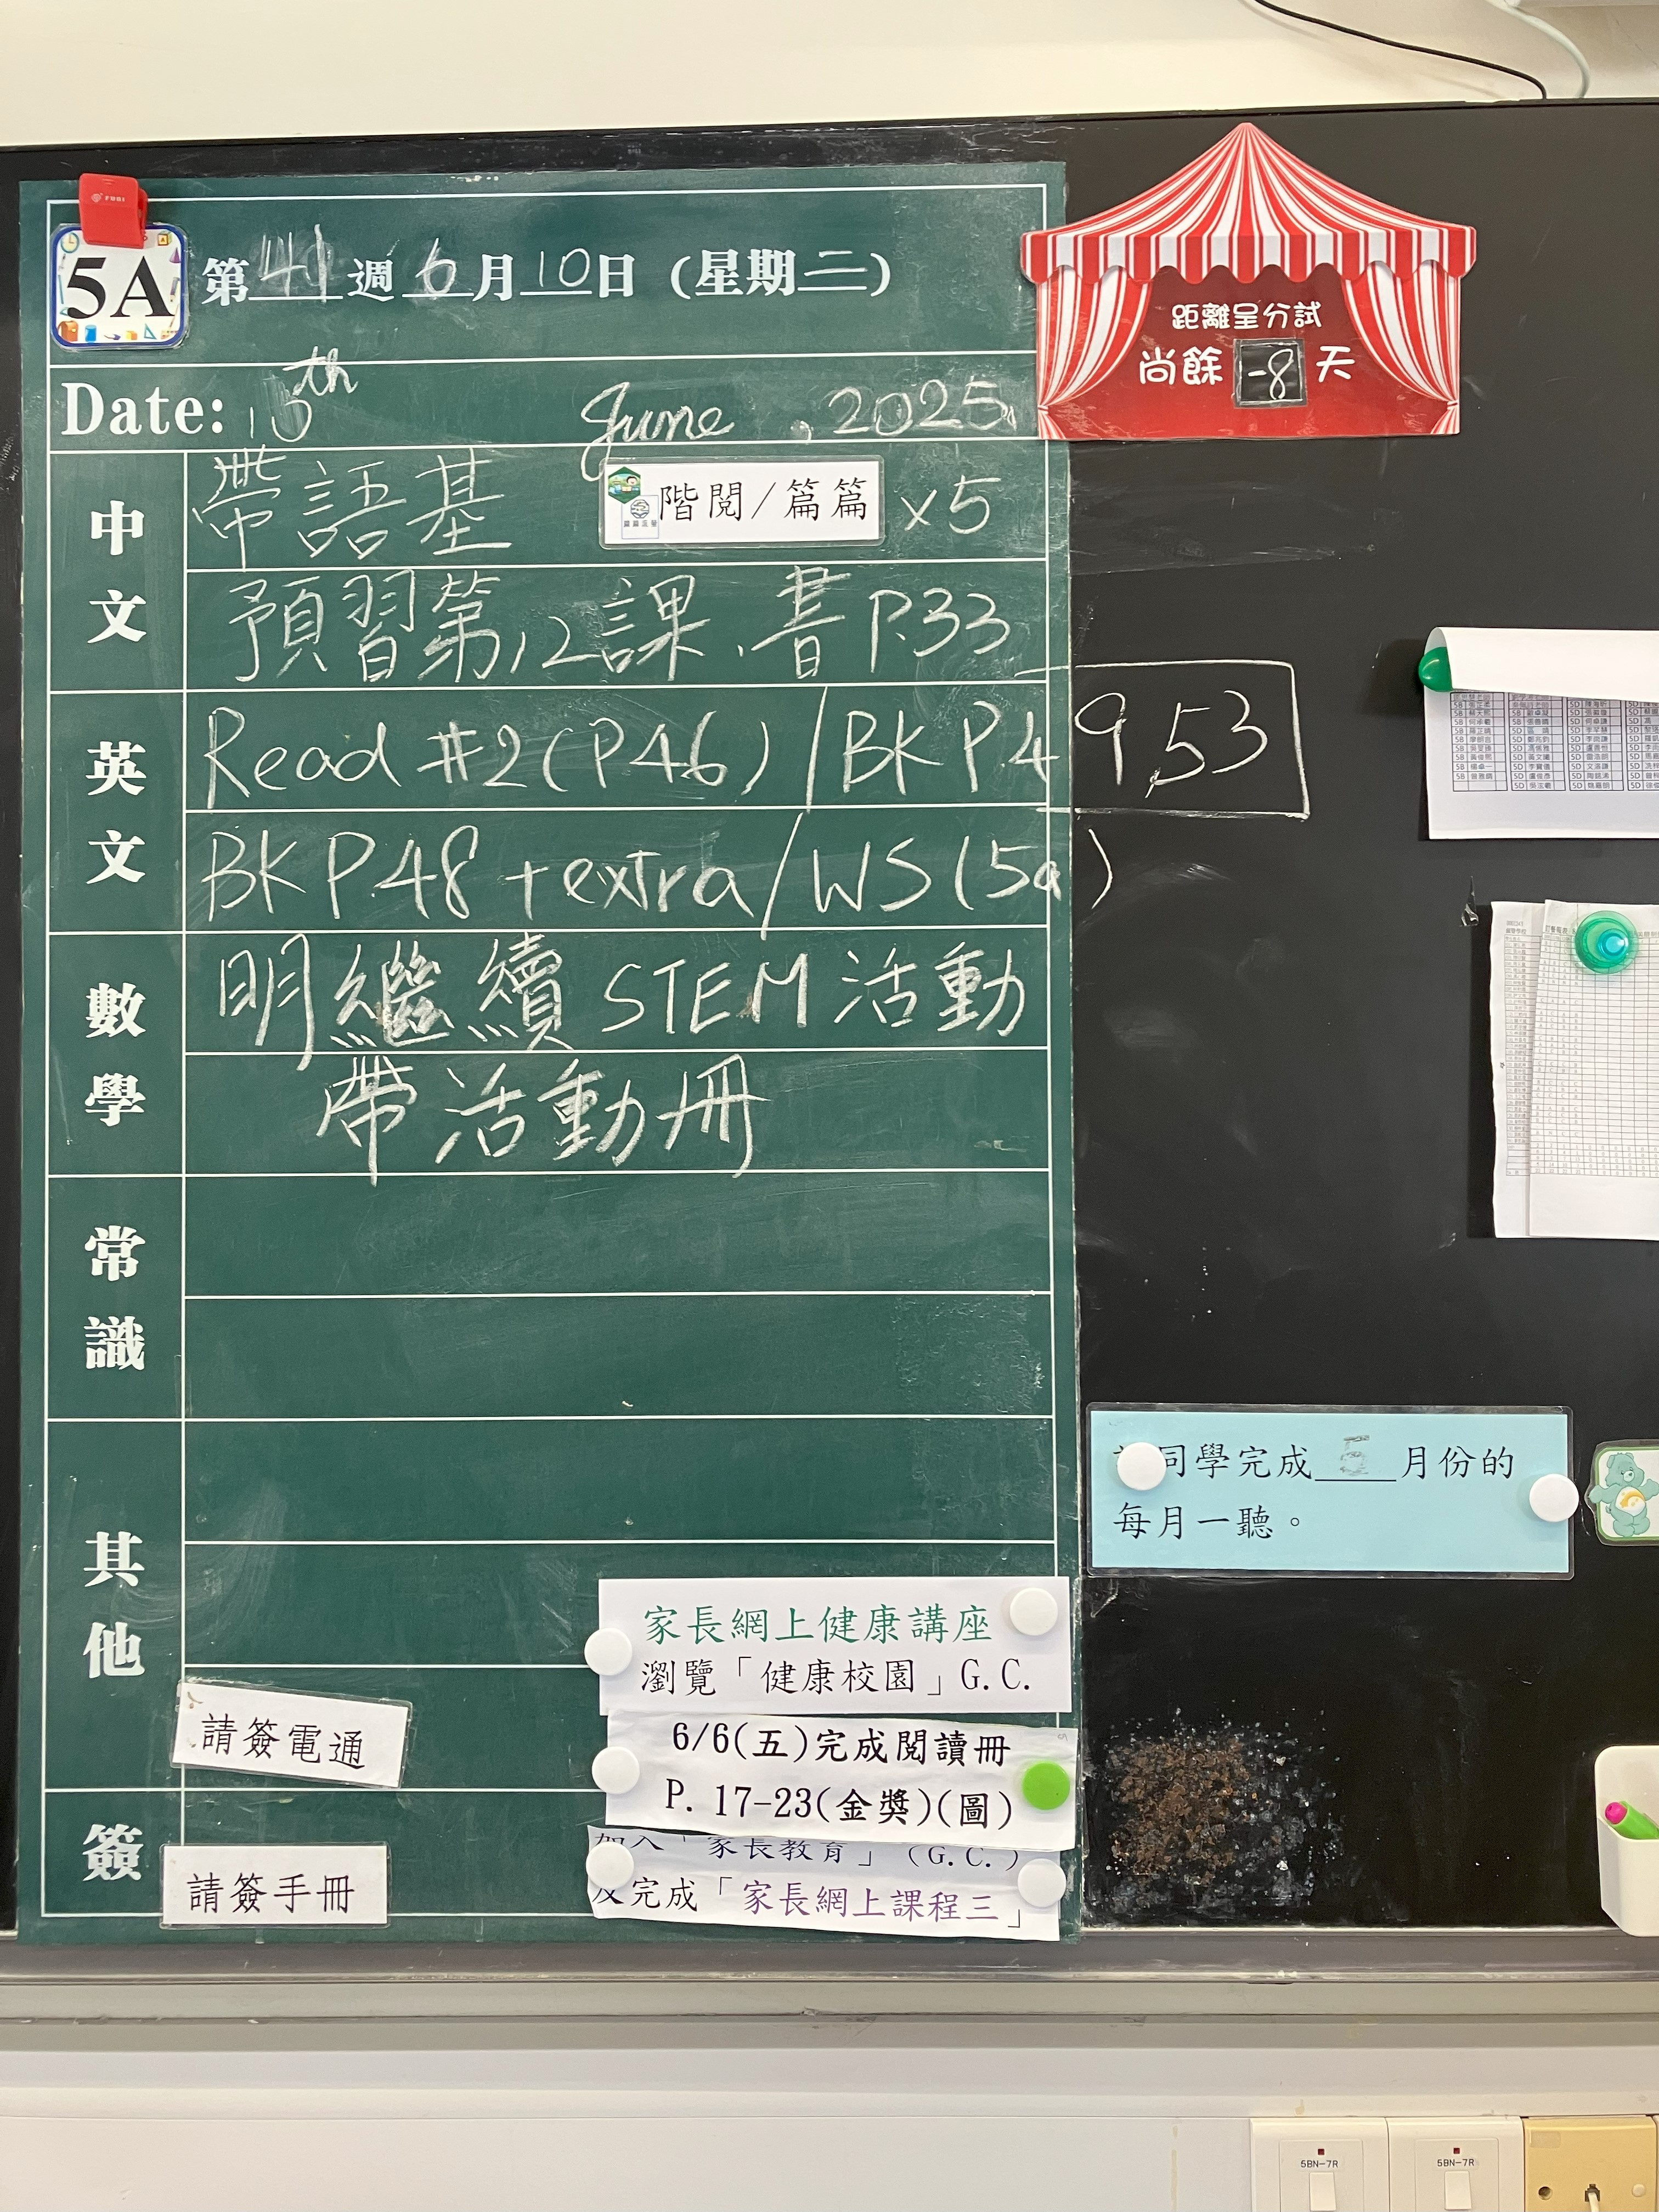 5A
第41週6月10日(星期二)
Date: 10th June, 2025.
距離呈分試
尚餘 -8 天
中文
帶語基 階閱/篇篇 x5
預習第12課、書P.33
英文
Read #2(P.46) / BK P.49,53
BK P.48 + extra / WS (5a)
數學
明繼續STEM活動
帶活動冊
常識
其他
同學完成 5 月份的
每月一聽。
家長網上健康講座
瀏覽「健康校園」G.C.
6/6(五)完成閱讀冊
P. 17-23(金獎)(圖)
請簽電通
簽
加入「家長教育」(G.C.)
及完成「家長網上課程三」
請簽手冊
5BN-7R
5BN-7R